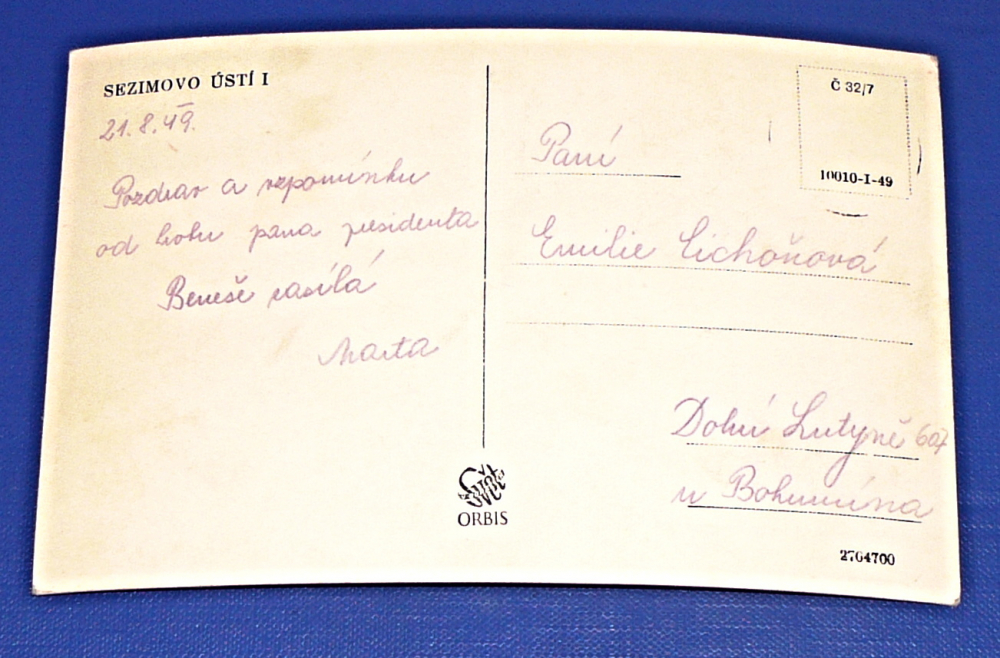 SEZIMOVO ÚSTÍ I
21.8.49.
Pozdrav a vzpomínku
od hrobu pana presidenta
Beneše zasílá
Marta
Č 32/7
10010-I-49
Paní
Emilie Cichoňová
Dolní Lutyně 607
u Bohumína
ORBIS
2764700